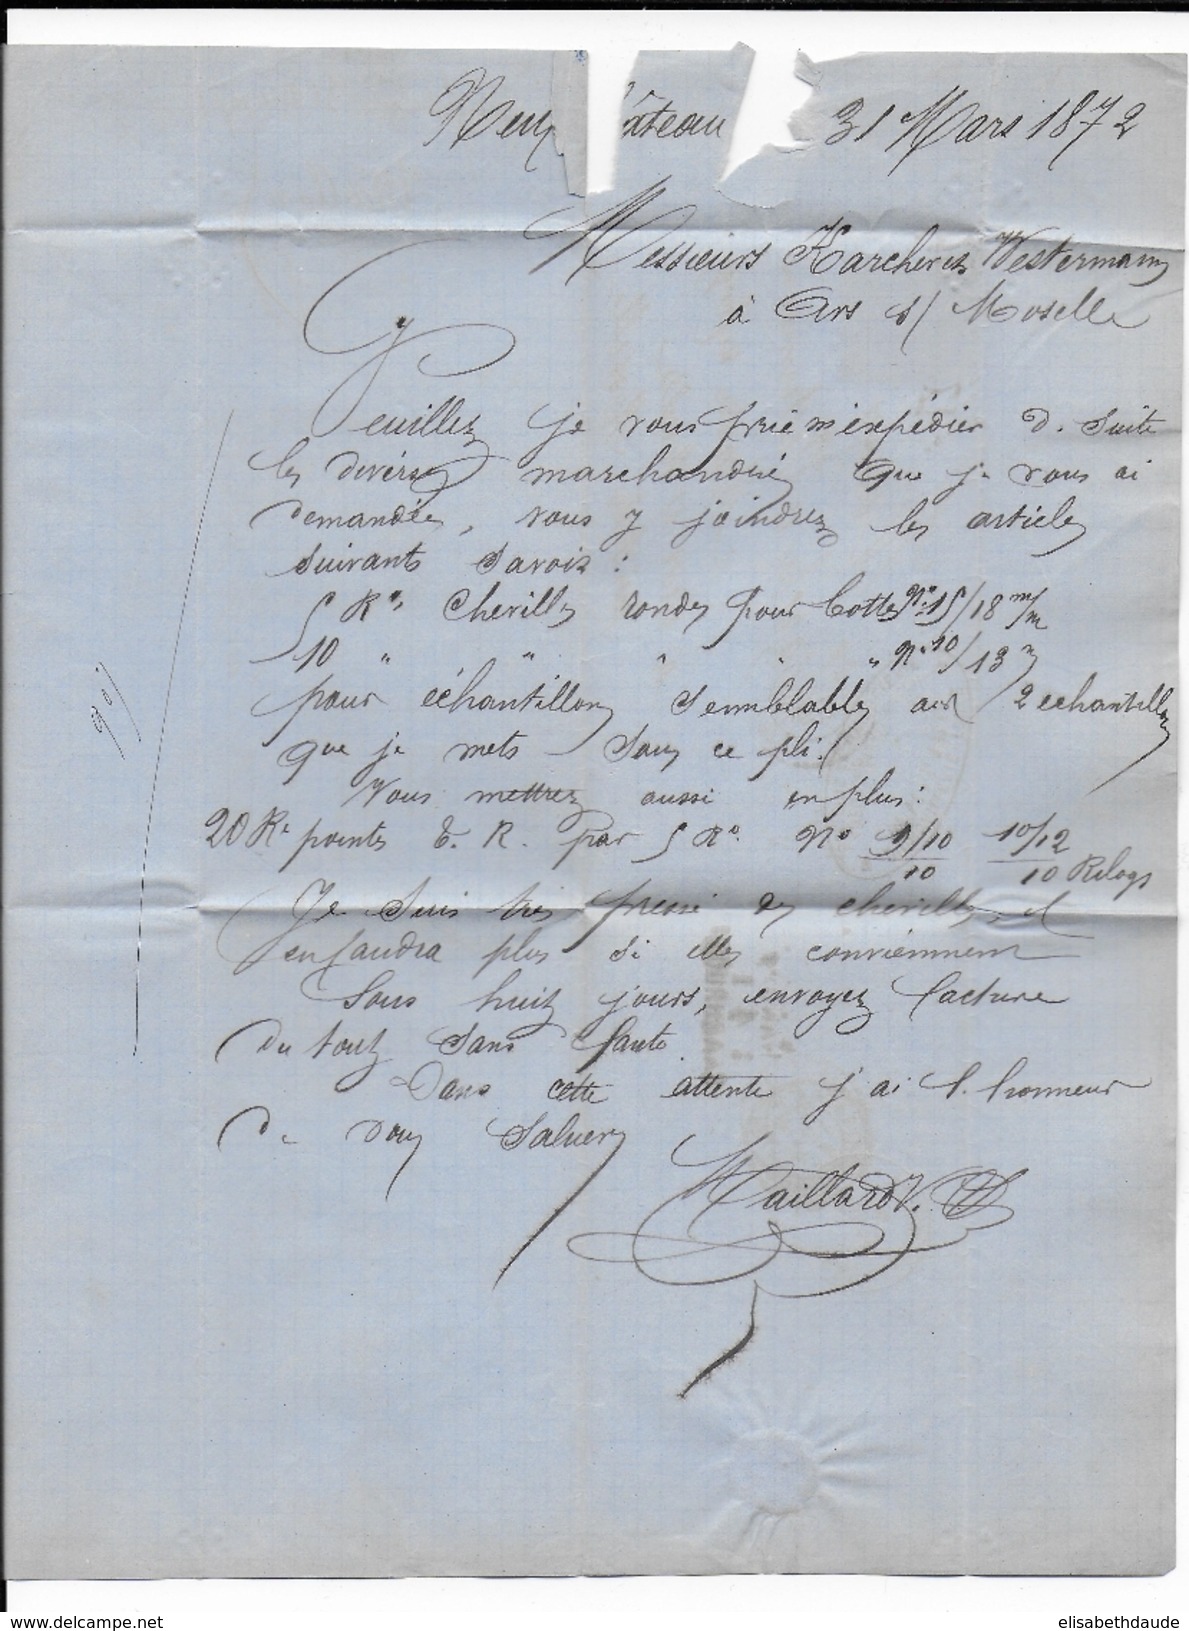 Neufchâteau 31 Mars 1872
Messieurs Karcher et Westermann
à Ars s/ Moselle
Veuillez je vous prie m'expédier d. suite
les diverses marchandises que je vous ai
demandées, vous y joindrez les articles
suivants savoir :
5 K°s Chevilles rondes pour bottes N° 15/18 m/m
10 " " " " " N° 10/13 m
pour échantillons semblables aux 2 echantillons
que je mets sous ce pli.
Vous mettrez aussi en plus :
20 K° pointes T. R. par 5 K° N° 9/10 10/12
10 10 Kilogs
Je suis très pressé des chevilles, il
en faudra plus si elles conviennent
sous huit jours, envoyez facture
du tout sans faute
Dans cette attente j'ai l. honneur
de vous saluer
Maillard V.
90/
elisabethdaude